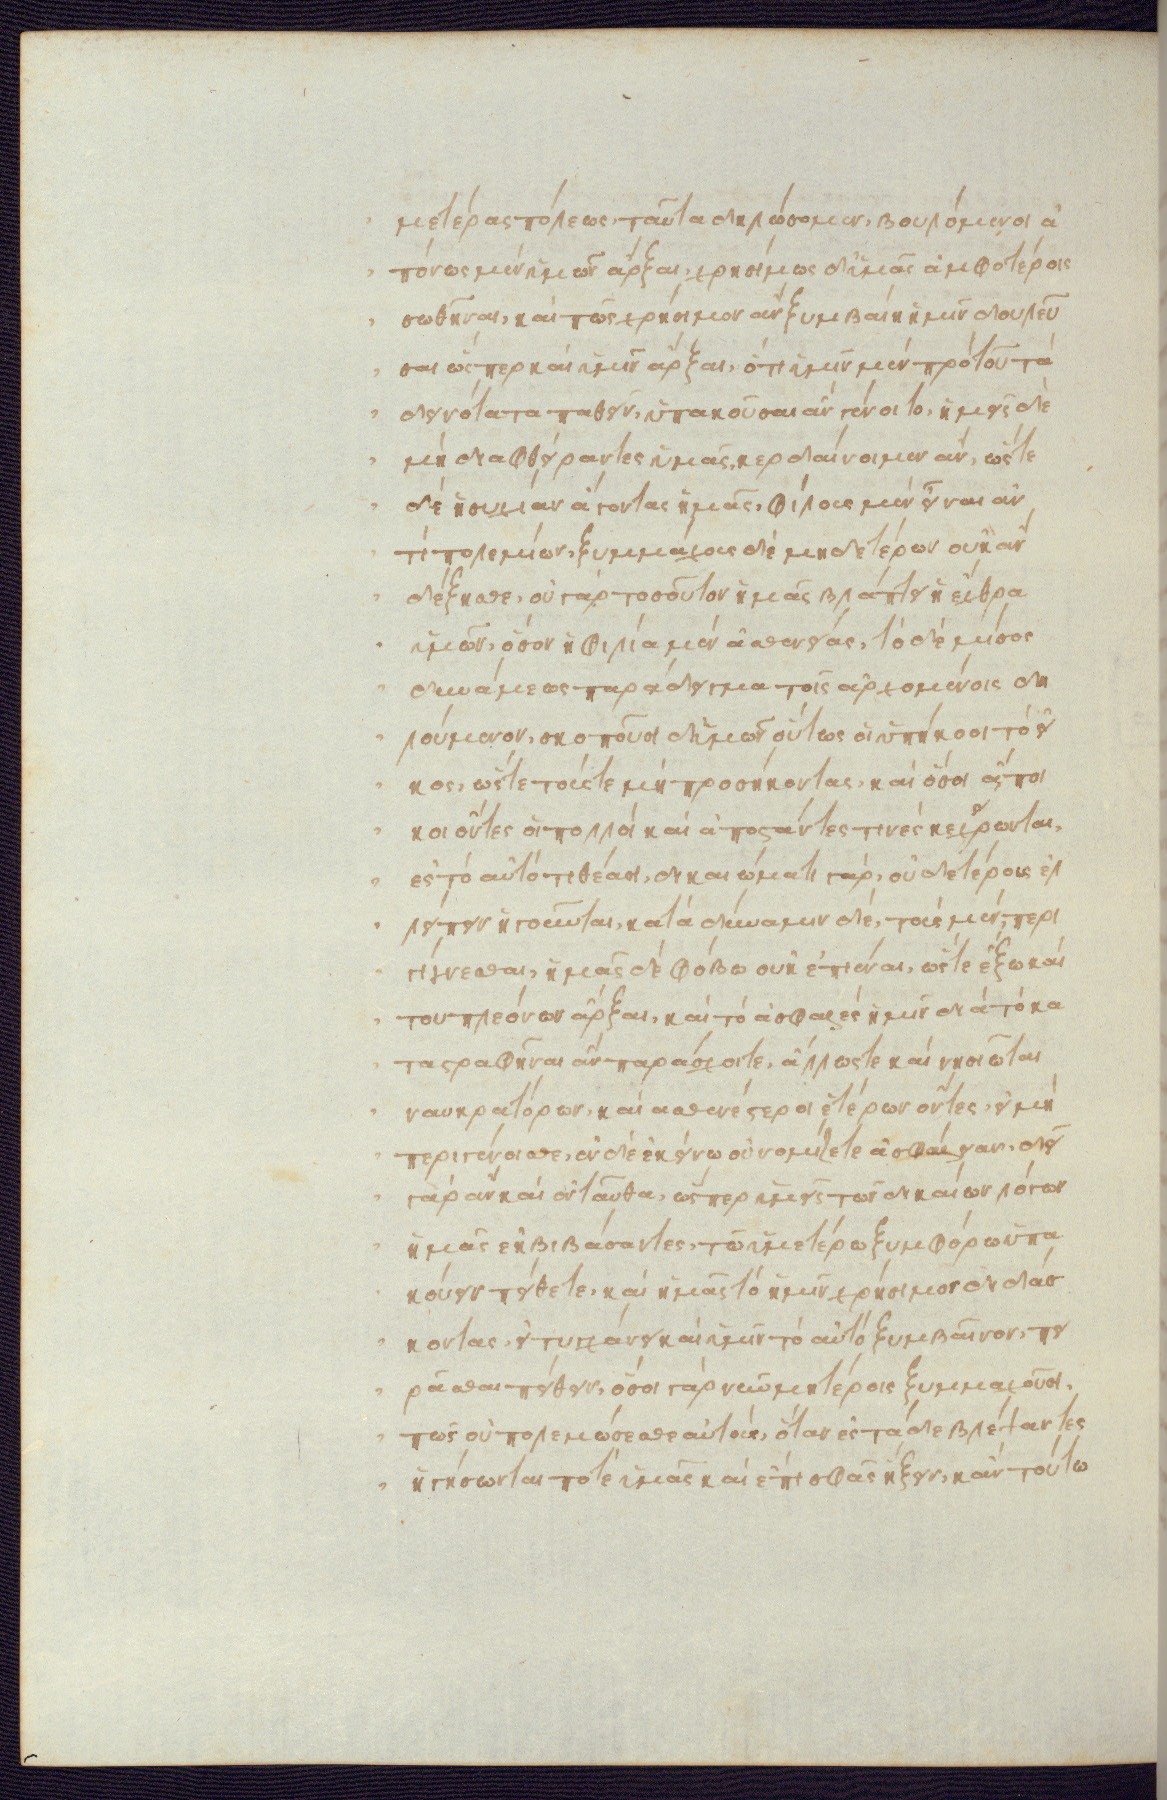 μετέρας πόλεως, ταῦτα δηλώσομεν, βουλόμενοι ἀ
πόνως μὲν ὑμῶν ἄρξαι, χρησίμως δ' ὑμᾶς ἀμφοτέροις
σωθῆναι, καὶ πῶς χρήσιμον ἂν ξυμβαίη ἡμῖν δουλεῦ
σαι ὥσπερ καὶ ὑμῖν ἄρξαι, ὅτι ὑμῖν μὲν πρὸ τοῦ τὰ
δεινότατα παθεῖν, ὑπακοῦσαι ἂν γένοιτο, ἡμεῖς δὲ
μὴ διαφθείραντες ὑμᾶς, κερδαίνοιμεν ἄν, ὥστε
δὲ ἡσυχίαν ἄγοντας ἡμᾶς, φίλους μὲν εἶναι ἀν
τὶ πολεμίων, ξυμμάχους δὲ μηδετέρων οὐκ ἂν
δέξησθε, οὐ γὰρ τοσοῦτον ἡμᾶς βλάπτει ἡ ἔχθρα
ὑμῶν, ὅσον ἡ φιλία μὲν ἀσθενείας, τὸ δὲ μῖσος
δυνάμεως παράδειγμα τοῖς ἀρχομένοις δη
λούμενον, σκοποῦσι δ' ὑμῶν οὕτως οἱ ὑπήκοοι τὸ εἰ
κος, ὥστε τούς τε μὴ προσήκοντας, καὶ ὅσοι ἄποι
κοι ὄντες οἱ πολλοὶ καὶ ἀποστάντες τινὲς κεχείρωνται,
ἐς τὸ αὐτὸ τιθέασι, δικαιώματι γὰρ, οὐδετέρους ἐλ
λείπειν ἡγοῦνται, κατὰ δύναμιν δὲ, τοὺς μὲν, περι
γίγνεσθαι, ἡμᾶς δὲ φόβω οὐκ ἐπιέναι, ὥστε ἔξω καὶ
του πλεόνων ἄρξαι, καὶ τὸ ἀσφαλὲς ἡμῖν διὰ τὸ κα
ταστραφῆναι ἂν παράσχοιτε, ἄλλως τε καὶ νησιῶται
ναυκρατόρων, καὶ ἀσθενέστεροι ἑτέρων ὄντες, εἰ μὴ
περιγένοισθε, ἐν δὲ ἐκείνω οὐ νομίζετε ἀσφάλειαν, δεῖ
γὰρ αὖ καὶ ἐνταῦθα, ὥσπερ ὑμεῖς τῶν δικαίων λόγων
ἡμᾶς ἐκβιβάσαντες, τῶ ὑμετέρω ξυμφόρω ὑπα
κούειν πείθετε, καὶ ἡμᾶς τὸ ἡμῖν χρήσιμον διδάσ
κοντας, εἰ τυγχάνει καὶ ὑμῖν τὸ αὐτὸ ξυμβαῖνον, πει
ρᾶσθαι πείθειν, ὅσοι γὰρ νῦν μηδετέροις ξυμμαχοῦσι,
πῶς οὐ πολεμώσεσθε αὐτοὺς, ὅταν ἐς τάδε βλέψαντες
ἡγήσωνταί ποτε ὑμᾶς καὶ ἐπὶ σφᾶς ἥξειν, κἀν τούτω